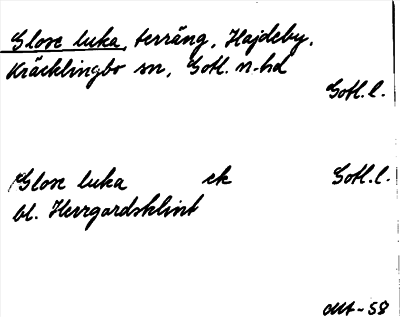 Glose luka, terräng, Hajdeby,
Kräcklingbo sn, Gotl. n. hd
Gotl. l.
Glose luka ek Gotl. l.
bl. Herrgardsklint
okt - 58